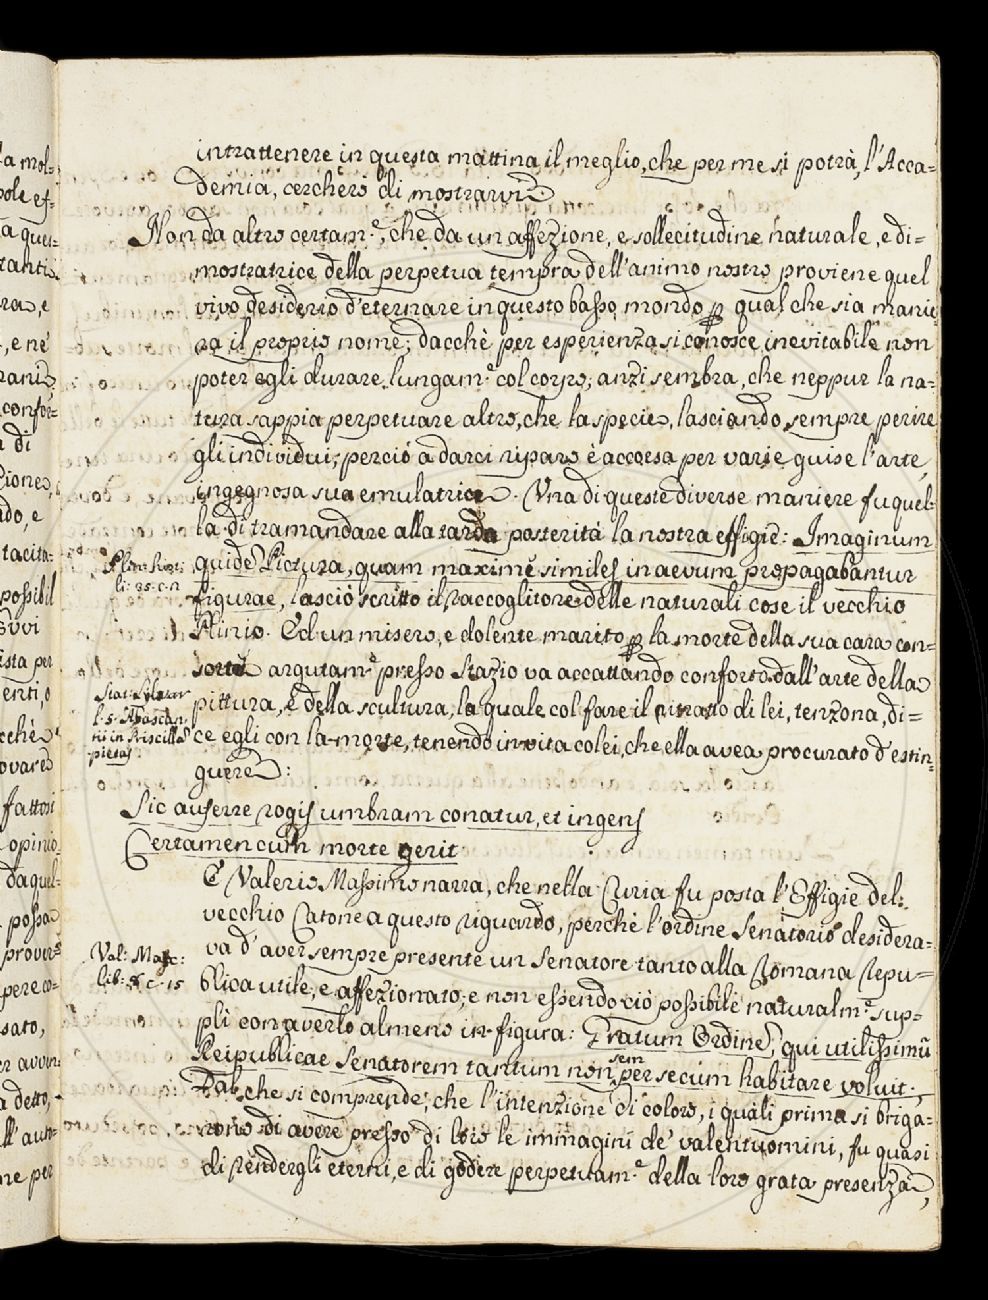 intrattenere in questa mattina il meglio, che per me si potrà, l'Acca-
demia, cercherò di mostrarvi.
Non da altro certam.e, che da un affezione, e sollecitudine naturale, e di=
mostratrice della perpetua tempra dell'animo nostro proviene quel
vivo desiderio d'eternare in questo basso mondo p qual che sia manie
ra il proprio nome; dacchè per esperienza si conosce inevitabile non
poter egli durare lungam.e col corpo; anzi sembra, che neppur la na=
tura sappia perpetuare altro, che la specie, lasciando sempre perire
gli individui; perciò à darci riparo è accorsa per varie guise l'arte,
ingegnosa sua emulatrice. Una di queste diverse maniere fu quel=
la di tramandare alla tarda posterità la nostra effigie: Imaginum
Plin: hist:
li: 35. c. n
quidē Pictura, quam maximē similes in aevum propagabantur
figurae, lasciò scritto il raccoglitore delle naturali cose il vecchio
Plinio. Ed un misero, e dolente marito p la morte della sua cara con=
sorte argutam.e presso Stazio va accattando conforto dall'arte della
Stat: Sylvar
l. 5. Abascan
tii in Priscillā
pietas.
pittura, e della scultura, la quale col fare il ritratto di lei, tenzona, di=
ce egli con la morte, tenendo in vita colei, che ella avea procurato d'estin=
guere:
Sic auferre rogis umbram conatur, et ingens
Certamen cum morte gerit
E Valerio Massimo narra, che nella Curia fu posta l'Effigie del
vecchio Catone a questo riguardo, perchè l'ordine Senatorio desidera=
Val: Mass:
lib: 8. c. 15
va d'aver sempre presente un Senatore tanto alla Romana Repu=
blica utile, e affezionato; e non essendo ciò possibile naturalm.e sup=
plì con averlo almeno in figura: Gratum Ordinē, qui utilissimū
Reipublicae Senatorem tantum non sem per secum habitare voluit;
Dal che si comprende, che l'intenzione di coloro, i quali prima si briga=
rono di avere presso di loro le immagini de' valentuomini, fu quasi
di rendergli eterni, e di godere perpetuam.e della loro grata presenza,